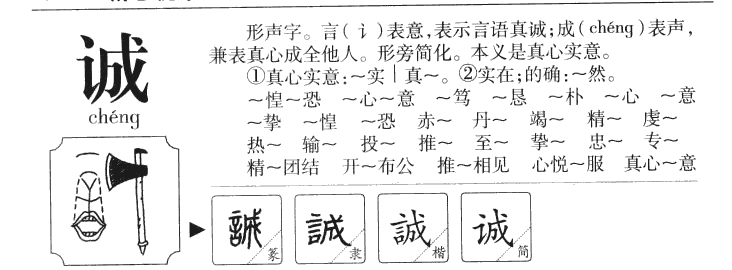 形声字。言(讠)表意,表示言语真诚;成(chéng)表声,
兼表真心成全他人。形旁简化。本义是真心实意。
①真心实意:~实│真~。②实在;的确:~然。
~惶~恐 ~心~意 ~笃 ~恳 ~朴 ~心 ~意
~挚 ~惶 ~恐 赤~ 丹~ 竭~ 精~ 虔~
热~ 输~ 投~ 推~ 至~ 挚~ 忠~ 专~
精~团结 开~布公 推~相见 心悦~服 真心~意
诚
chéng
誠 篆 誠 隶 誠 楷 诚 简